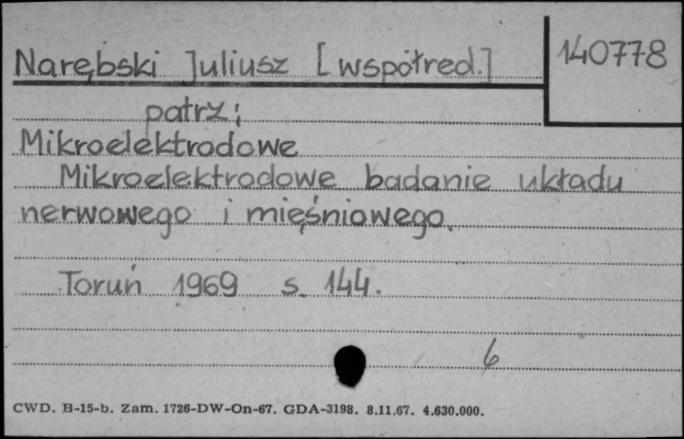 Narębski Juliusz [współred.]
140778
patrz:
Mikroelektrodowe
Mikroelektrodowe badanie układu
nerwowego i mięśniowego.
Toruń 1969 s. 144.
6
CWD. B-15-b. Zam. 1726-DW-On-67. GDA-3198. 8.11.67. 4.630.000.